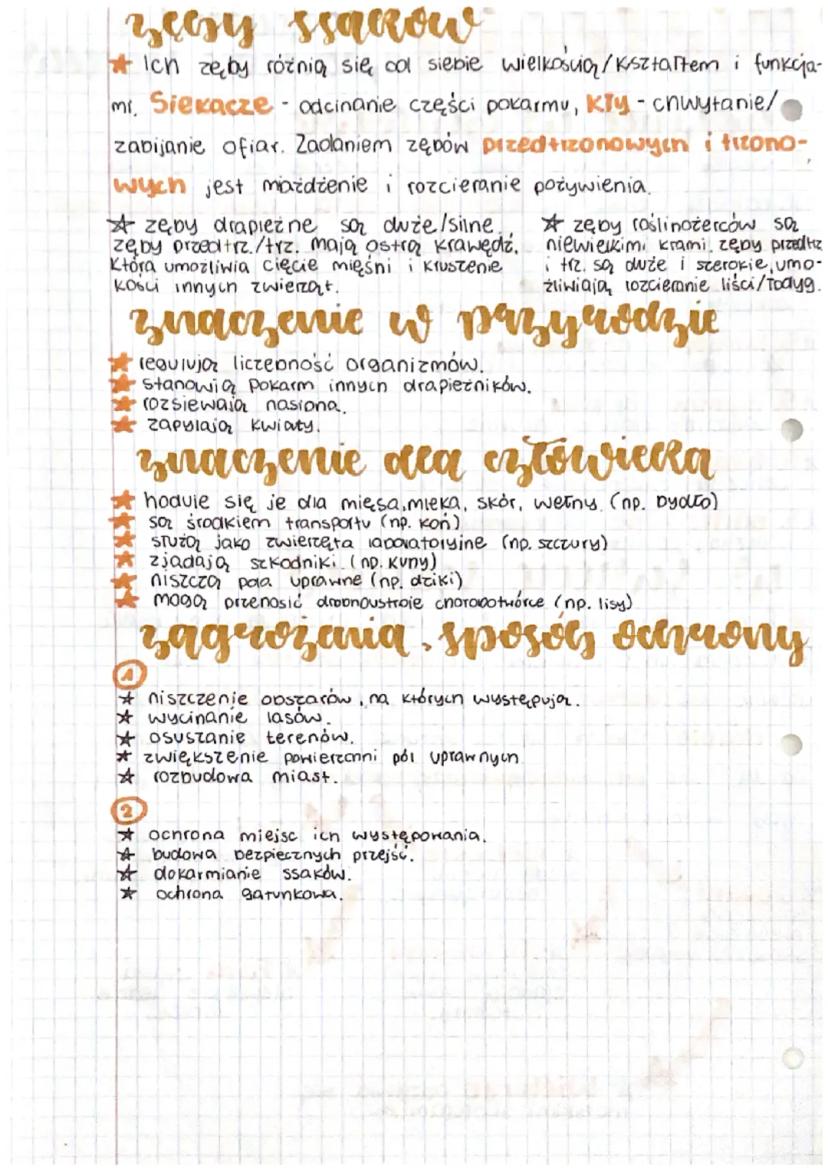 zęby ssaków
★ Ich zęby różnią się od siebie wielkością/kształtem i funkcja-
mi. Siekacze - odcinanie części pokarmu, Kły - chwytanie/
zabijanie ofiar. Zadaniem zębów przedtrzonowych i trzono-
wych jest miażdżenie i rozcieranie pożywienia.
☆ zęby drapieżne są duże/silne.
zęby przedtrz./trz. mają ostrą krawędź,
która umożliwia cięcie mięśni i kruszenie
kości innych zwierząt.
☆ zęby roślinożerców są
niewielkimi kłami. zęby przedtrz
i trz. są duże i szerokie, umo-
żliwiają rozcieranie liści/łodyg.
znaczenie w przyrodzie
★ regulują liczebność organizmów.
★ stanowią pokarm innych drapieżników.
★ rozsiewają nasiona.
★ zapylają kwiaty.
znaczenie dla człowieka
★ hoduje się je dla mięsa, mleka, skór, wełny. (np. bydło)
★ są środkiem transportu (np. koń)
★ służą jako zwierzęta laboratoryjne (np. szczury)
★ zjadają szkodniki. (np. kuny)
★ niszczą pola uprawne (np. dziki)
★ mogą przenosić drobnoustroje chorobotwórcze (np. lisy)
zagrożenia, sposób ochrony
1
☆ niszczenie obszarów, na których występują.
☆ wycinanie lasów.
☆ osuszanie terenów.
☆ zwiększenie powierzchni pól uprawnych
☆ rozbudowa miast.
2
☆ ochrona miejsc ich występowania.
☆ budowa bezpiecznych przejść.
☆ dokarmianie ssaków.
☆ ochrona gatunkowa.